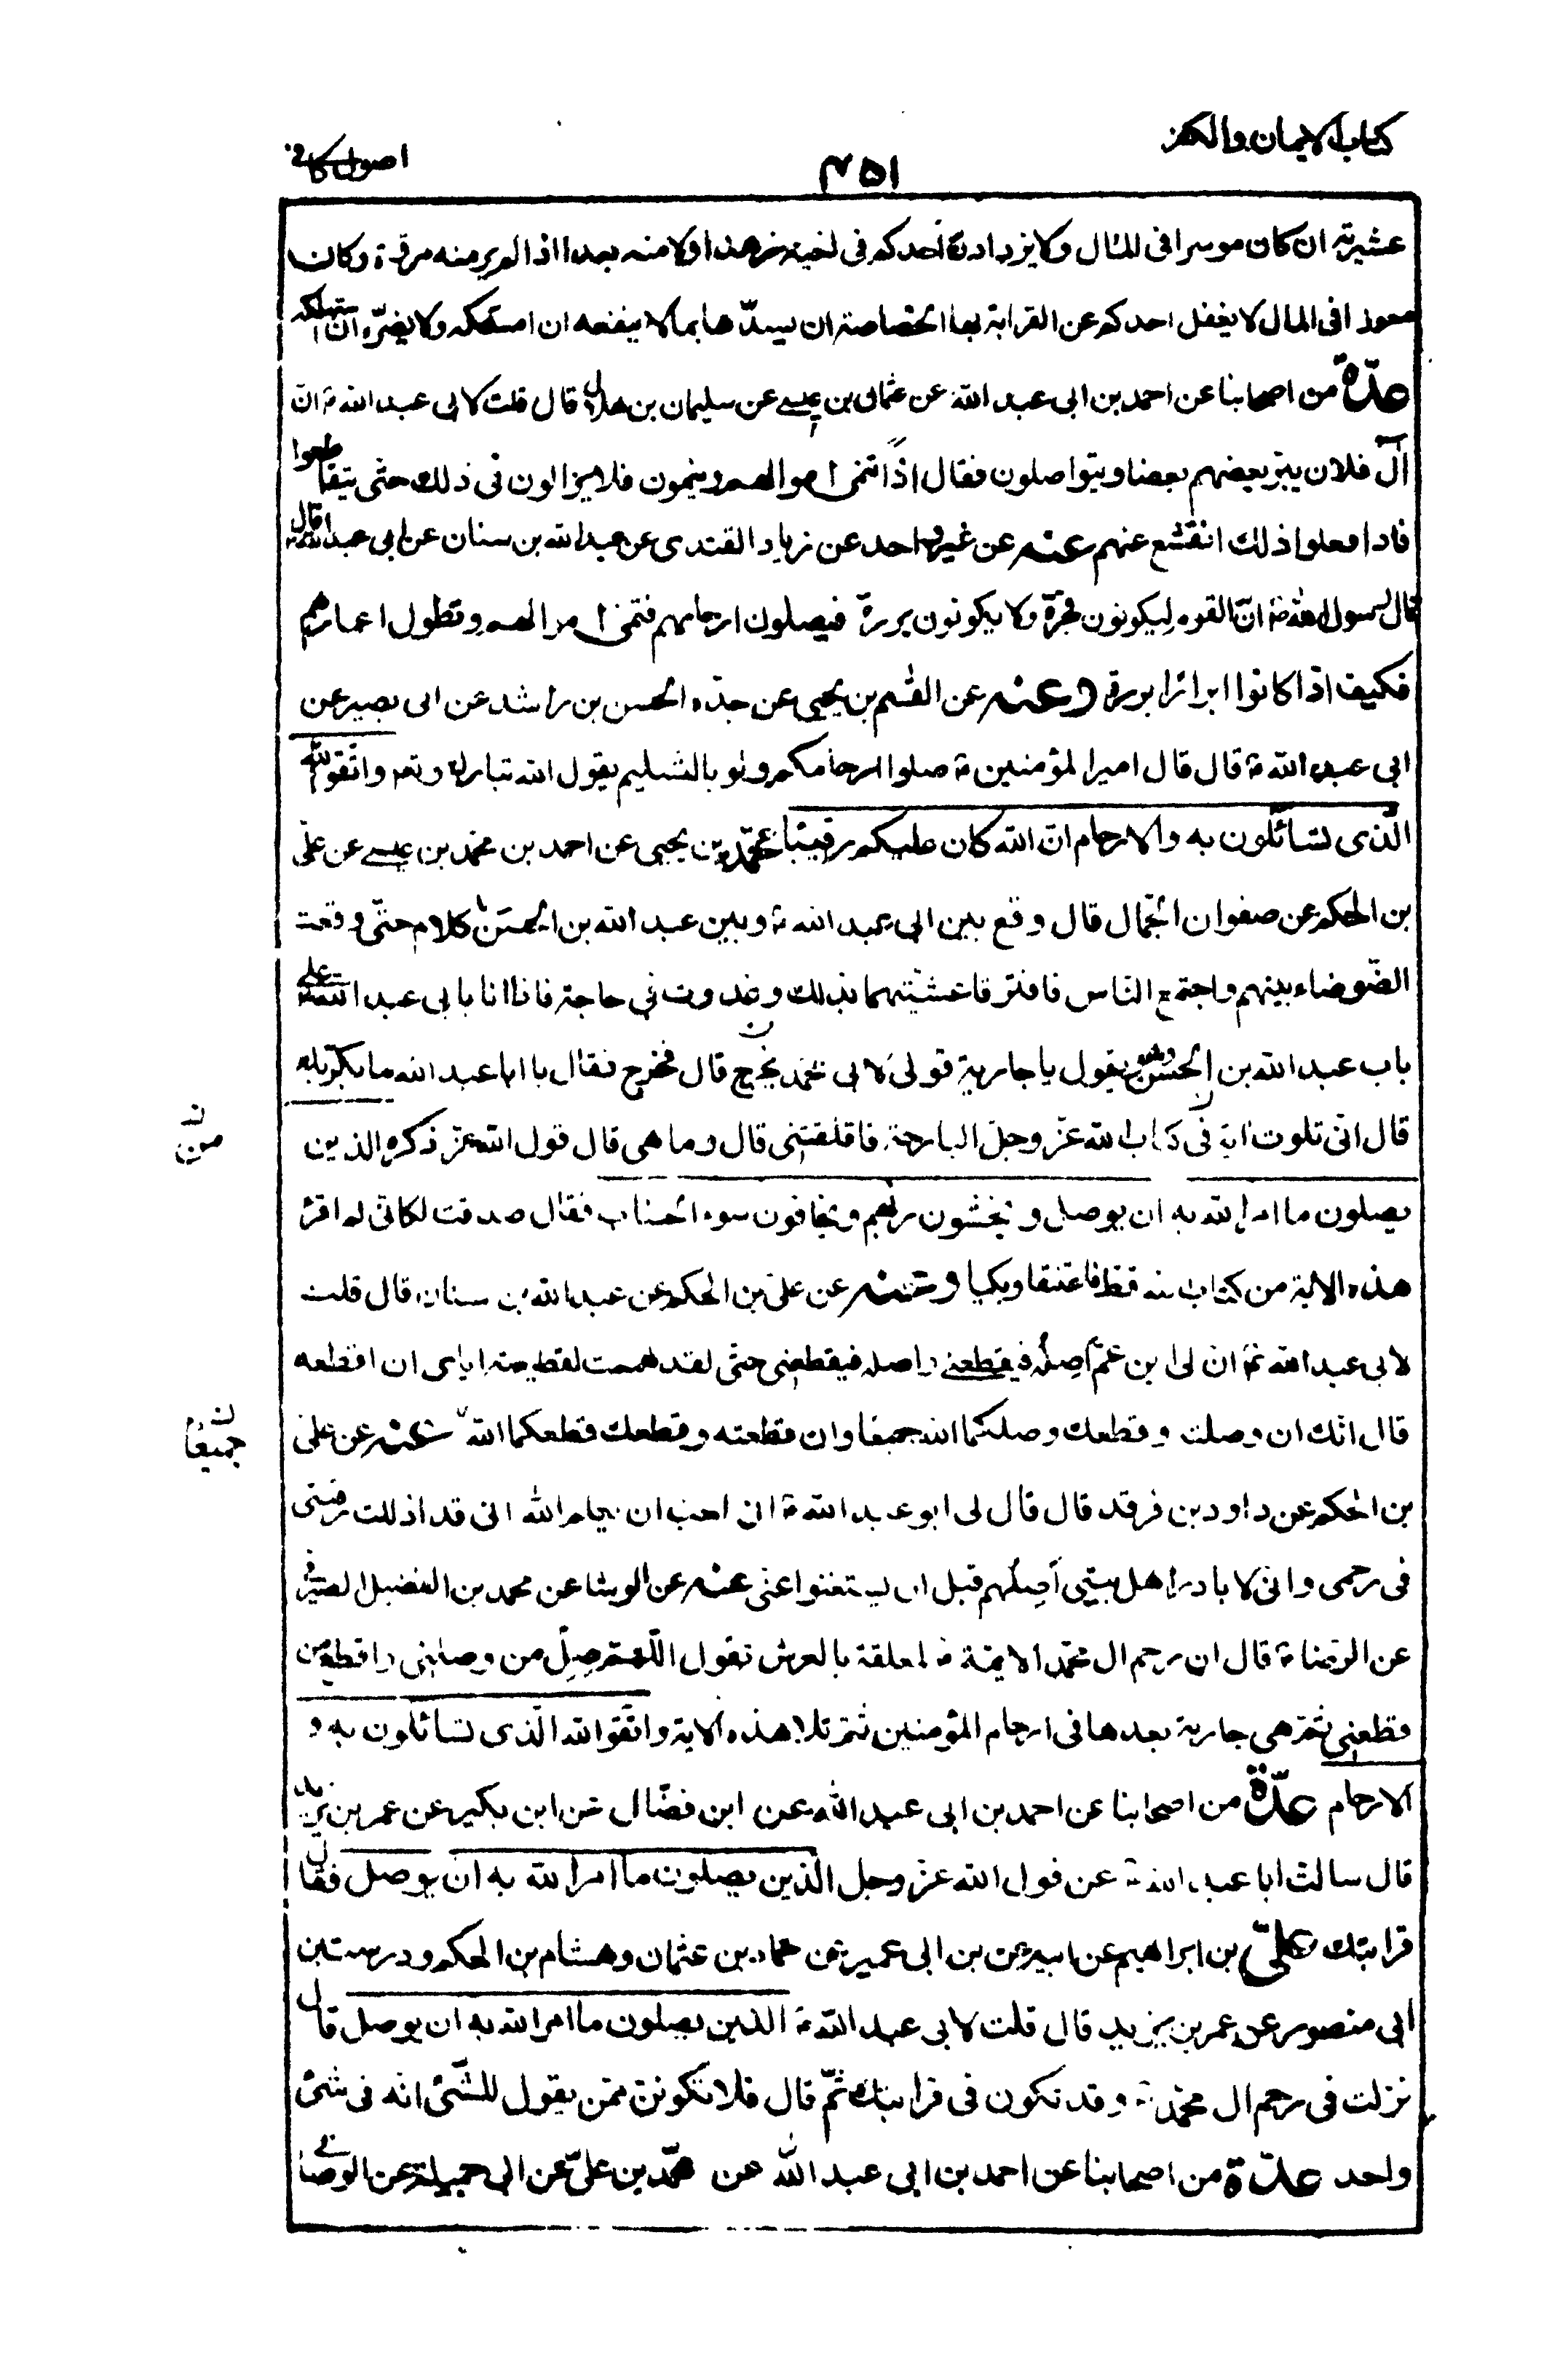 كتاب الايمان والكفر
۴۵۱
اصول كافى
عشيرته ان كان موسرا فى المال ولا يزدادن احدكم فى اخيه زهدا ولا منه بعدا اذا لم ير منه مروة وكان
معوزا فى المال لا يغفل احدكم عن القرابة بها الخصاصة ان يسدّها بما لا ينفعه ان امسكه ولا يضرّه ان استهلكه
عدّة من اصحابنا عن احمد بن ابى عبد الله عن عثمان بن عيسى عن سليمان بن هلال قال قلت لابى عبد الله ع انّ
آل فلان يبرّ بعضهم بعضا ويتواصلون فقال اذًا تنمى اموالهم وينمون فلا يزالون فى ذلك حتّى يتقاطعوا
فاذا فعلوا ذلك انقشع عنهم عنه عن غير واحد عن زياد القندى عن عبد الله بن سنان عن ابى عبد الله ع قال
قال رسول الله ص انّ القوم ليكونون فجرة ولا يكونون بررة فيصلون ارحامهم فتنمى اموالهم وتطول اعمارهم
فكيف اذا كانوا ابرارا بررة وعنه عن القسم بن يحيى عن جدّه الحسن بن راشد عن ابى بصير عن
ابى عبد الله ع قال قال امير المؤمنين ع صلوا ارحامكم ولو بالتسليم يقول الله تبارك وتع واتّقوا الله
الّذى تسائلون به والارحام انّ الله كان عليكم رقيبا محمّد بن يحيى عن احمد بن محمّد بن عيسى عن علىّ
بن الحكم عن صفوان الجمّال قال وقع بين ابى عبد الله ع وبين عبد الله بن الحسن كلام حتّى وقعت
الضّوضاء بينهم واجتمع النّاس فافترقا عشيّتهما بذلك وغدوت فى حاجة فاذا انا بابى عبد الله ع على
باب عبد الله بن الحسن وهو يقول يا جارية قولى لابى محمّد يخرج قال فخرج فقال يا ابا عبد الله ما بكّر بك
قال انّى تلوت اية فى كتاب الله عزّ وجلّ البارحة فاقلقتنى قال وما هى قال قول الله عزّ ذكره الذين
يصلون ما امر الله به ان يوصل ويخشون ربّهم ويخافون سوء الحساب فقال صدقت لكانّى لم اقرء
هذه الاية من كتاب الله قط فاعتنقا وبكيا وعنه عن علىّ بن الحكم عن عبد الله بن سنان قال قلت
لابى عبد الله ع انّ لى ابن عمّ اصله فيقطعنى واصله فيقطعنى حتّى لقد هممت لقطيعته اياى ان اقطعه
قال انّك ان وصلته وقطعك وصلكما الله جميعا وان قطعته وقطعك قطعكما الله عنه عن علىّ
جميعًا
بن الحكم عن داود بن فرقد قال قال لى ابو عبد الله ع انى احب ان يعلم الله انى قد اذللت رقبتى
فى رحمى وانّى لابادر اهل بيتى اَصِلُهم قبل ان يستغنوا عنّى عنه عن الوشا عن محمد بن الفضيل الصيرفى
عن الرّضا ع قال ان رحم ال محمّد الائمّة ع لمعلقة بالعرش تقول اللّهمّ صِلْ من وصلنى واقطع من
قطعنى ثمّ هى جارية بعدها فى ارحام المؤمنين ثمّ تلا هذه الاية واتّقوا الله الّذى تسائلون به و
الارحام عدّة من اصحابنا عن احمد بن ابى عبد الله عن ابن فضّال عن ابن بكير عن عمر بن يزيد
قال سالت ابا عبد الله ع عن قول الله عزّ وجل الّذين يصلون ما امر الله به ان يوصل فقال
قرابتك علىّ بن ابراهيم عن ابيه عن بن ابى عمير عن حماد بن عثمان وهشام بن الحكم ودرست بن
ابى منصور عن عمر بن يزيد قال قلت لابى عبد الله ع الذين يصلون ما امر الله به ان يوصل قال
نزلت فى رحم ال محمّد ع وقد تكون فى قرابتك ثمّ قال فلا تكونن ممّن يقول للشّىء انه فى شىء
واحد عدّة من اصحابنا عن احمد بن ابى عبد الله عن محمّد بن علىّ عن ابى جميلة عن الوصافى